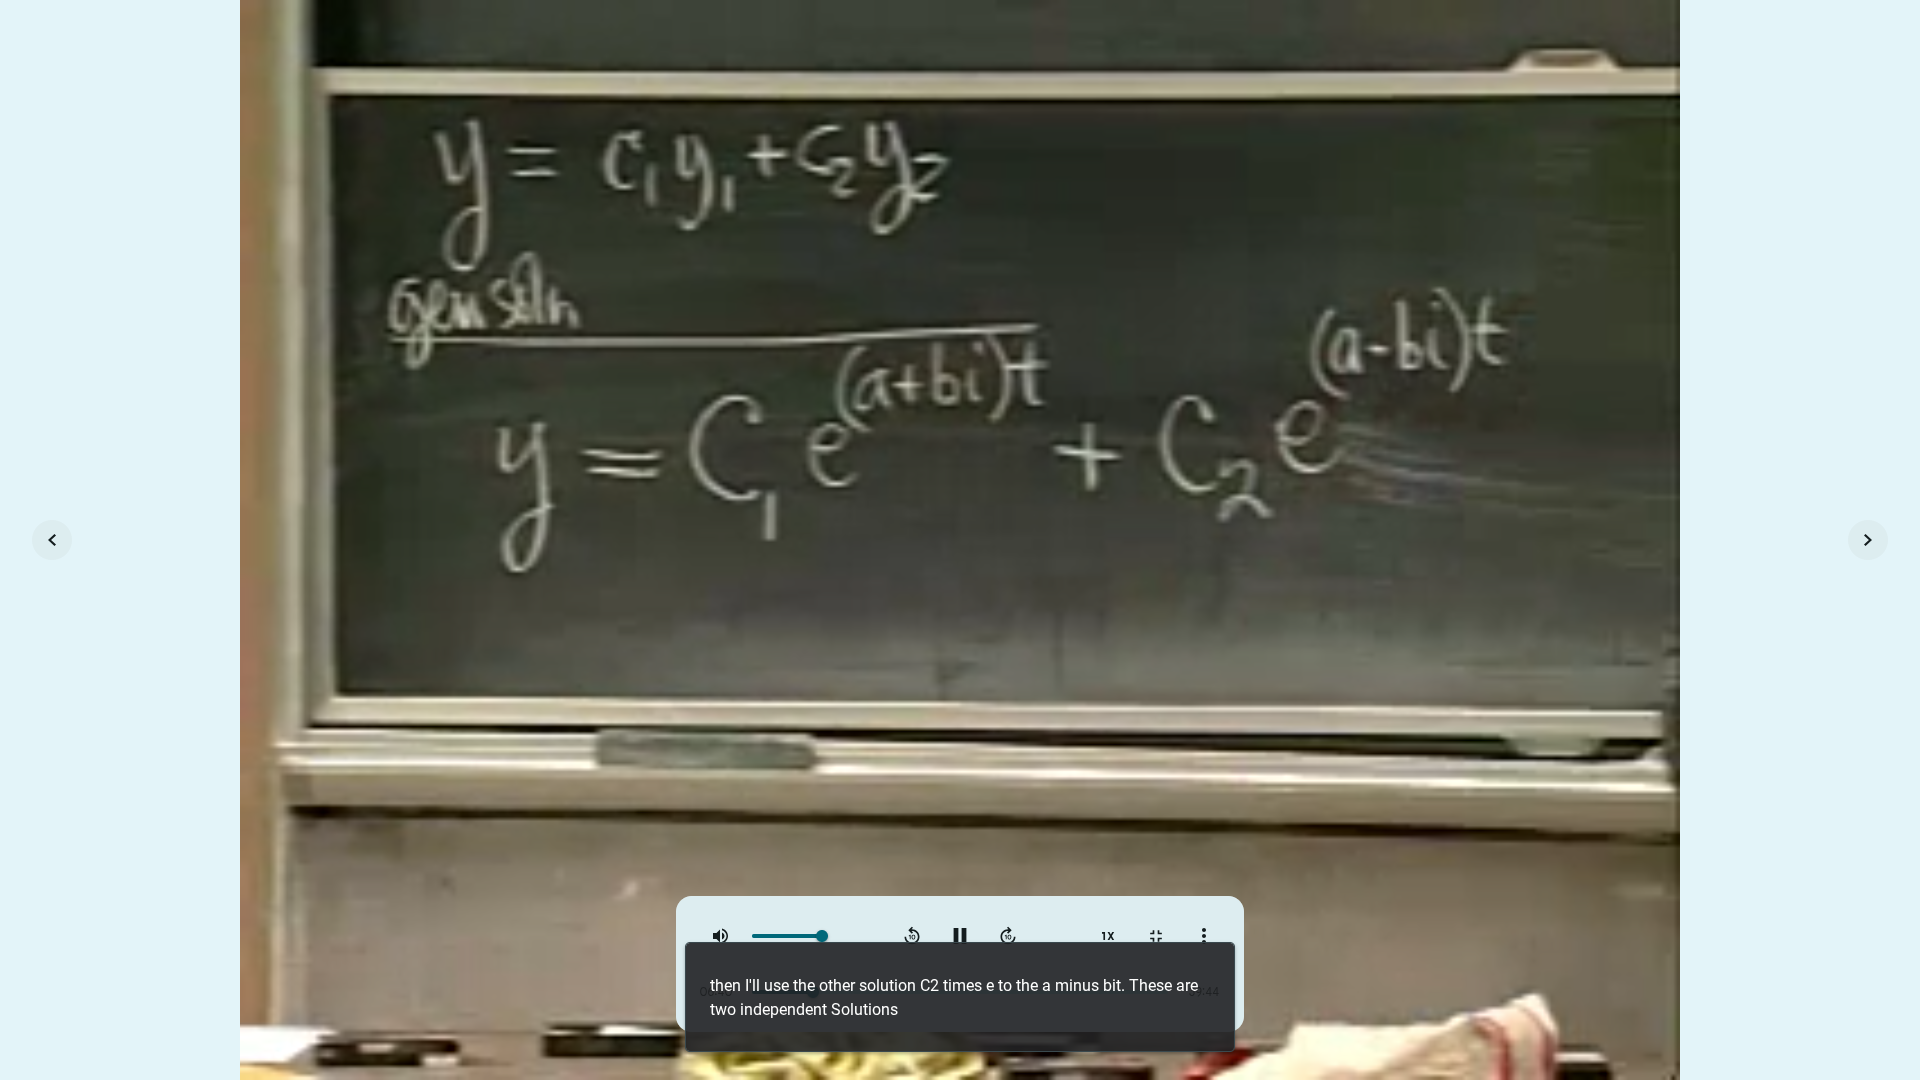 y = c₁y₁ + c₂y₂
gen soln
y = C₁e^(a+bi)t + C₂e^(a-bi)t
10
10
1X
then I'll use the other solution C2 times e to the a minus bit. These are
two independent Solutions